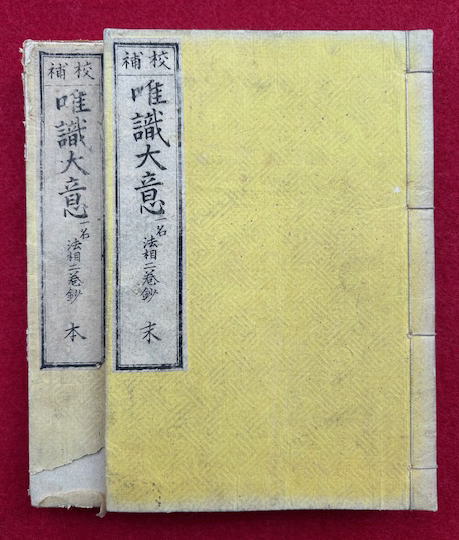 校補
唯識大意
一名
法相二巻鈔
本
校補
唯識大意
一名
法相二巻鈔
末